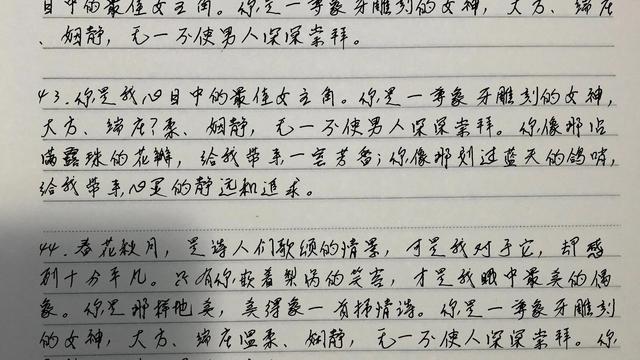 目中的最佳女主角。你是一尊象牙雕刻的女神，大方、端庄
、娴静，无一不使男人深深崇拜。
43.你是我心目中的最佳女主角。你是一尊象牙雕刻的女神，
大方、端庄?柔、娴静，无一不使男人深深崇拜。你像那沾
满露珠的花瓣，给我带来一室芳香；你像那划过蓝天的鸽哨，
给我带来心灵的静远和追求。
44.春花秋月，是诗人们歌颂的情景，可是我对于它，却感
到十分平凡。只有你嵌着梨涡的笑容，才是我眼中最美的偶
象。你是那样地美，美得象一首抒情诗。你是一尊象牙雕刻
的女神，大方、端庄温柔、娴静，无一不使人深深崇拜。你